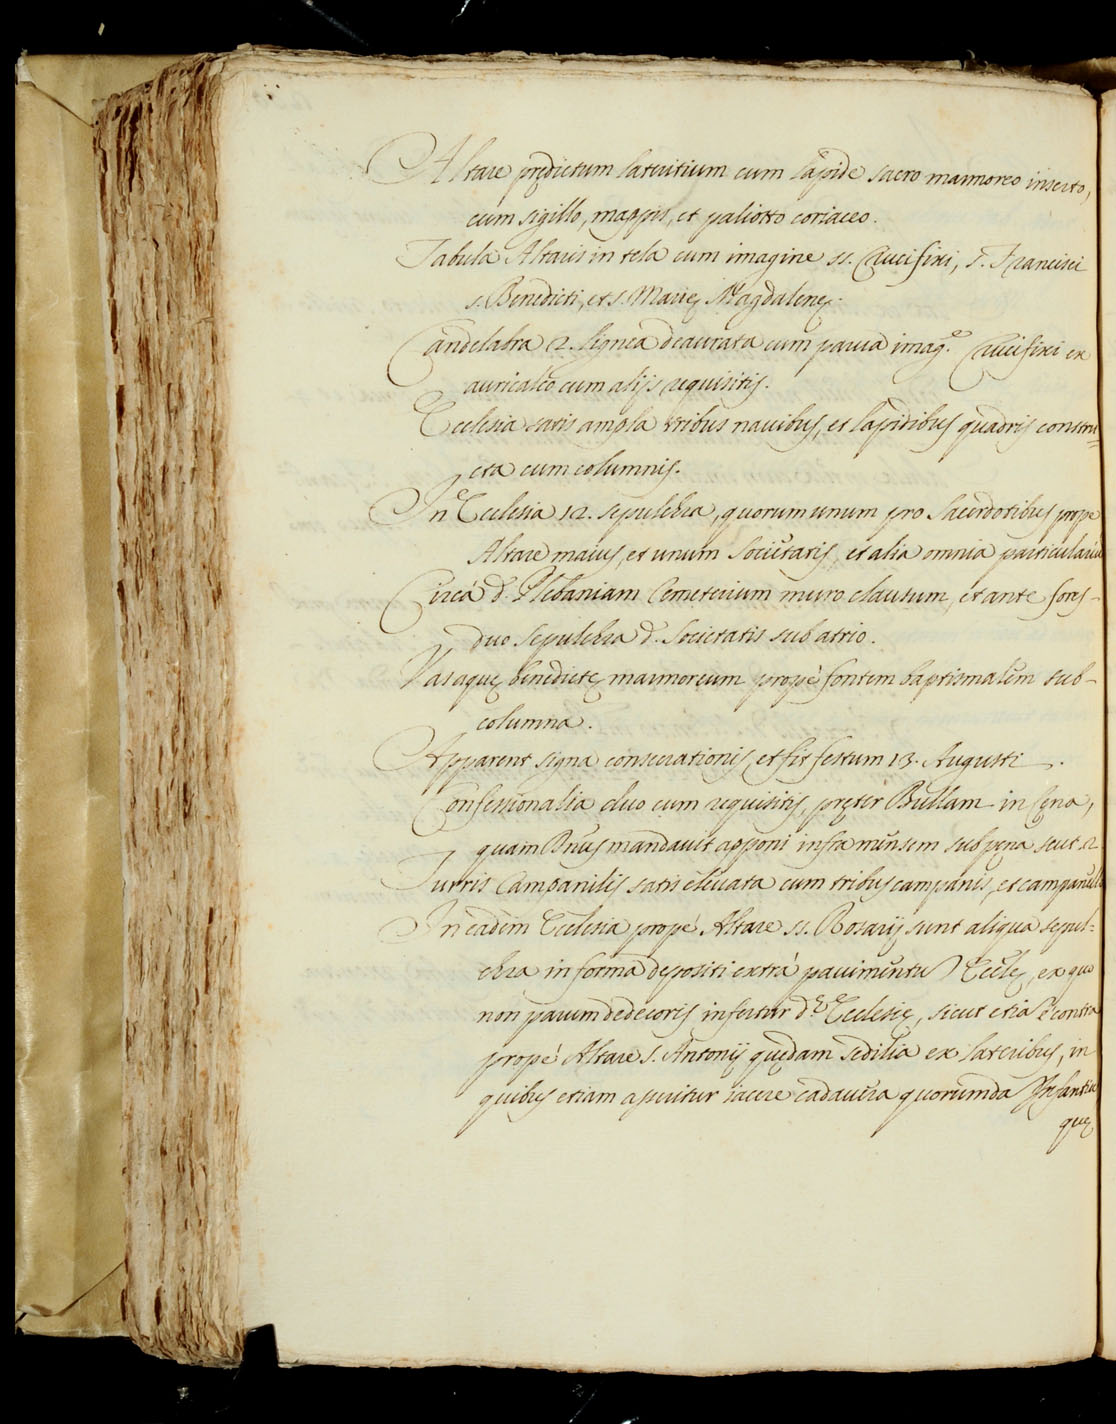 Altare prędictum lateritium cum lapide sacro marmoreo inserto,
cum sigillo, mappis, et paliotto coriaceo.
Tabula Altaris in tela cum imagine ss. Crucifixi, s. Francisci
s. Benedicti, et s. Marię Magdalenę.
Candelabra 2. lignea deaurata cum parua imag.e Crucifixi ex
auricalco cum alijs requisitis.
Ecclesia satis ampla tribus nauibus, et lapidibus quadris constru=
cta cum columnis.
In Ecclesia 12. sepulchra, quorum unum pro Sacerdotibus prope
Altare maius, et unum Societatis, et alia omnia particulariũ
Circà d. Plebaniam Cemeterium muro clausum, et ante fores-
duo sepulchra d. Societatis sub atrio.
Vas aquę benedictę marmoreum propè fontem baptismalem sub-
columna.
Apparent signa consecrationis, et fit festum 13. Augusti.
Confessionalia duo cum requisitis, pręter Bullam in Cena,
quam mandauit apponi infra mensem sub pena scut. 2
Turris Campanilis satis eleuata cum tribus campanis, et campanula
In eadem Ecclesia propè Altare ss. Rosarij sunt aliqua sepul=
chra in forma depositi extrà pauimentũ Eccle, ex quo
non parum dedecoris infertur d.ę Ecclesię, sicut etiã è contra
propè Altare s. Antonij quędam sedilia ex lateribus, in
quibus etiam iacere cadauera quorumdã Infantiũ
quę